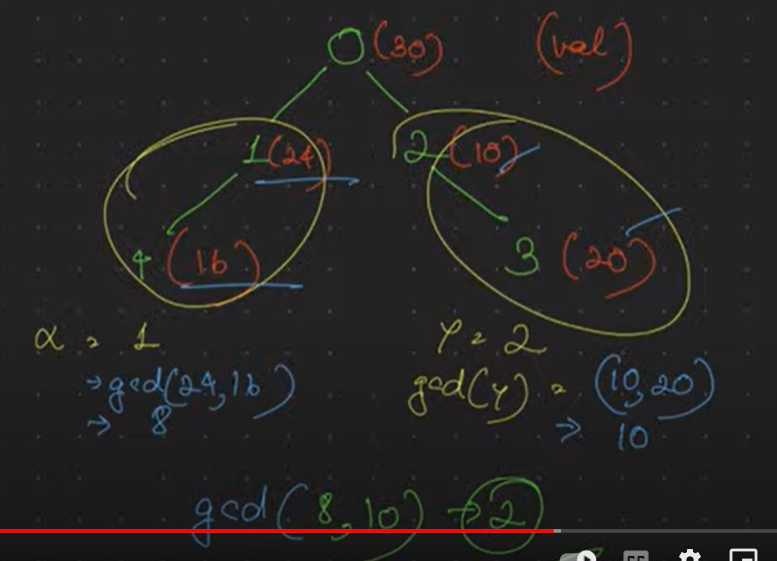 0 (30) (val)
1 (24) 2 (10)
4 (16) 3 (20)
x = 1 y = 2
→ gcd(24,16) gcd(y) = (10,20)
→ 8 → 10
gcd(8,10) → 2
CC